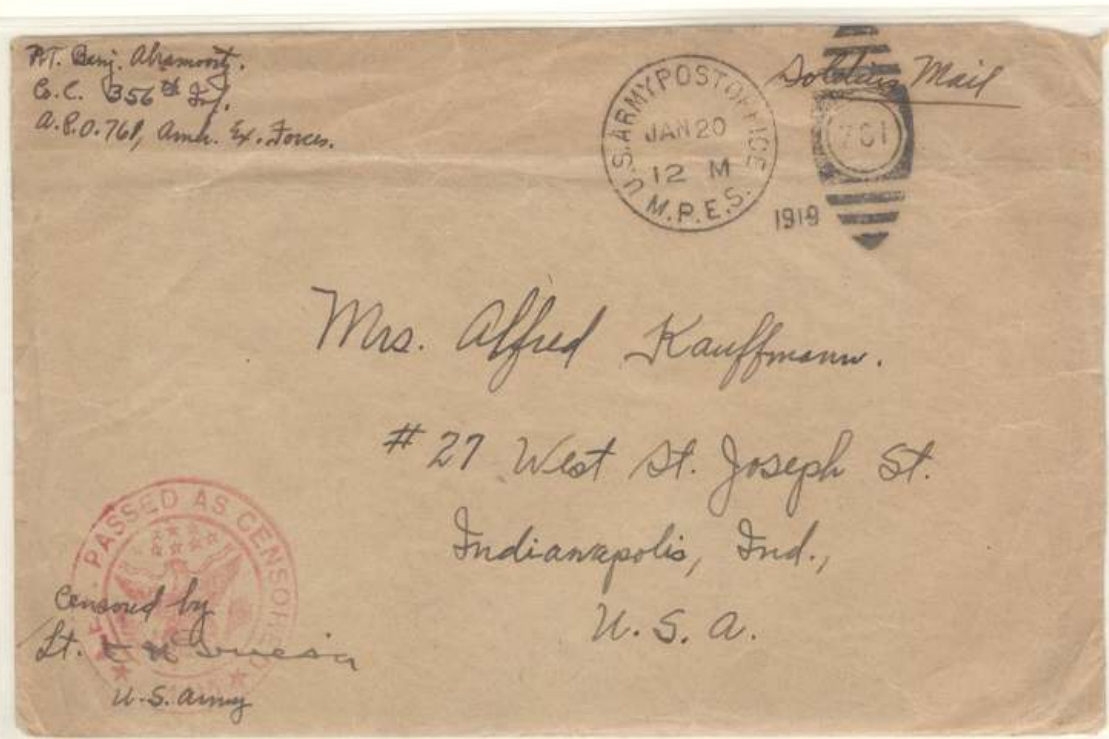 PVT. Benj. Abramovitz.
Co. C. 356th Inf.
A.P.O. 761, Amer. Ex. Forces.
Soldiers Mail
U.S. ARMY POST OFFICE
JAN 20
12 M
M.P.E.S.
1919
761
Mrs. Alfred Kauffmann.
#27 West St. Joseph St.
Indianapolis, Ind.,
U.S.A.
PASSED AS CENSORED
Censored by
Lt.
U.S. Army